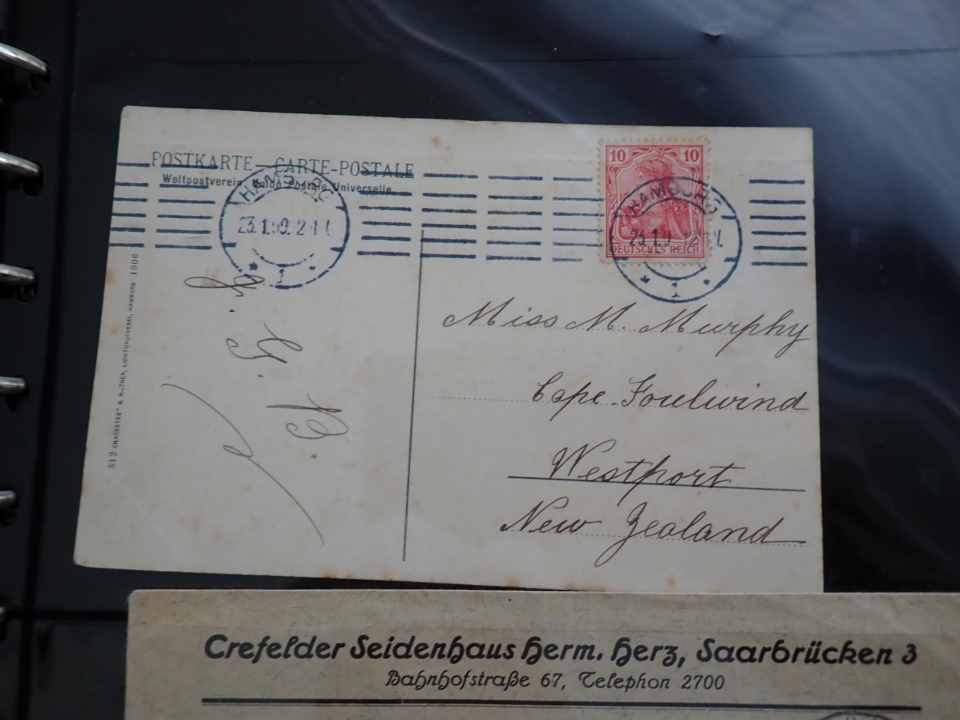 POSTKARTE – CARTE-POSTALE
Weltpostverein – Union Postale Universelle
HAMBURG
23.1.09. 2-1
* 1 *
10 10
DEUTSCHES REICH
HAMBURG
* 1 *
Miss M. Murphy
Cape Foulwind
Westport
New Zealand
G. B.
HAMBURG 1908
Crefelder Seidenhaus Herm. Herz, Saarbrücken 3
Bahnhofstraße 67, Telephon 2700